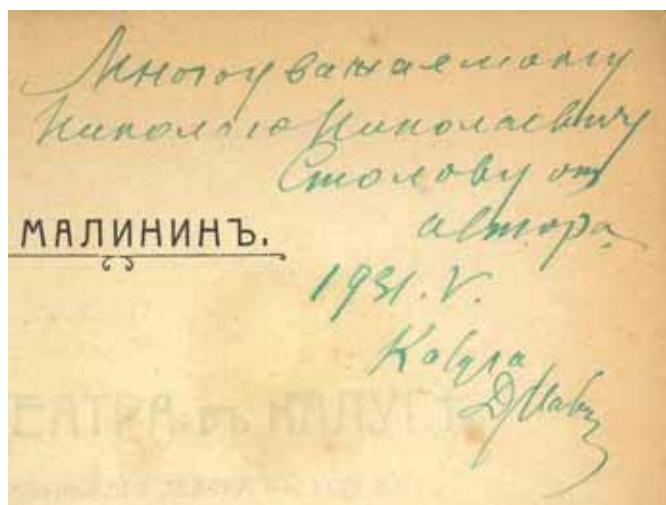 Многоуважаемому
Николаю Николаевичу
Столову от
МАЛИНИНЪ.
автора
1931. V.
Калуга
ЕАТРА въ КАЛУГѢ